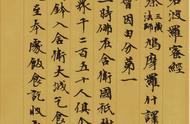 若波羅蜜經
三藏法師鳩摩羅什譯
會因由分第一
一時佛在舍衛國祇
眾千二百五十人俱
鉢入舍衛大城乞食
至本處飯食訖收